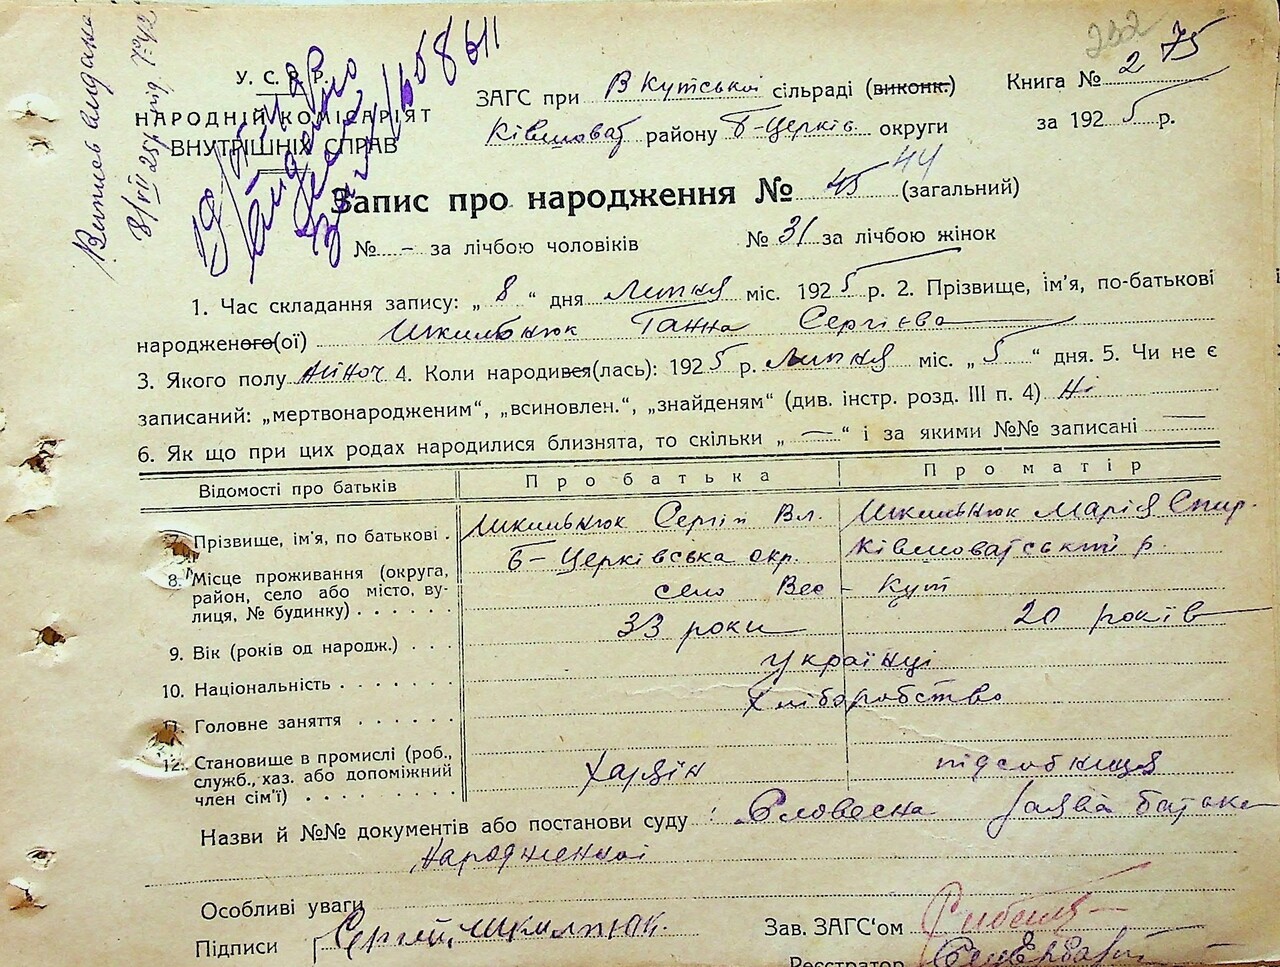 252
Виписъ видана
8/VII 25 р. під № 42
У. С. Р. Р.
НАРОДНІЙ КОМІСАРІЯТ
ВНУТРІШНІХ СПРАВ
ЗАГС при В Кутській сільраді (виконк.)
Ківшоват району Б-Церків. округи
Книга № 2 75
за 1925 р.
Запис про народження № 45 44 (загальний)
№ - за лічбою чоловіків № 31 за лічбою жінок
1. Час складання запису: „ 8 “ дня Липня міс. 1925 р. 2. Прізвище, ім'я, по-батькові
народженого(ої) Шкильнюк Ганна Сергієва
3. Якого полу жіноч 4. Коли народився(лась): 1925 р. Липня міс. „ 5 “ дня. 5. Чи не є
записаний: „мертвонародженим“, „всиновлен.“, „знайденям“ (див. інстр. розд. III п. 4) Ні
6. Як що при цих родах народилися близнята, то скільки „ — “ і за якими №№ записані —
Відомості про батьків Про батька Про матір
7. Прізвище, ім'я, по батькові . Шкильнюк Сергій Вл. Шкильнюк Марія Спир.
8. Місце проживання (округа, Б-Церківська окр. Ківшоватський р.
район, село або місто, ву- село Вес - Кут
лиця, № будинку)
9. Вік (років од народж.) 33 роки 20 років
10. Національність Українці
11. Головне заняття Хліборобство
12. Становище в промислі (роб.,
служб., хаз. або допоміжний Хазяїн підсобниця
член сім'ї)
Назви й №№ документів або постанови суду : Словесна заява батька
народженної
Особливі уваги
Підписи Сергей Шкилнюк.
Зав. ЗАГС'ом
Реєстратор